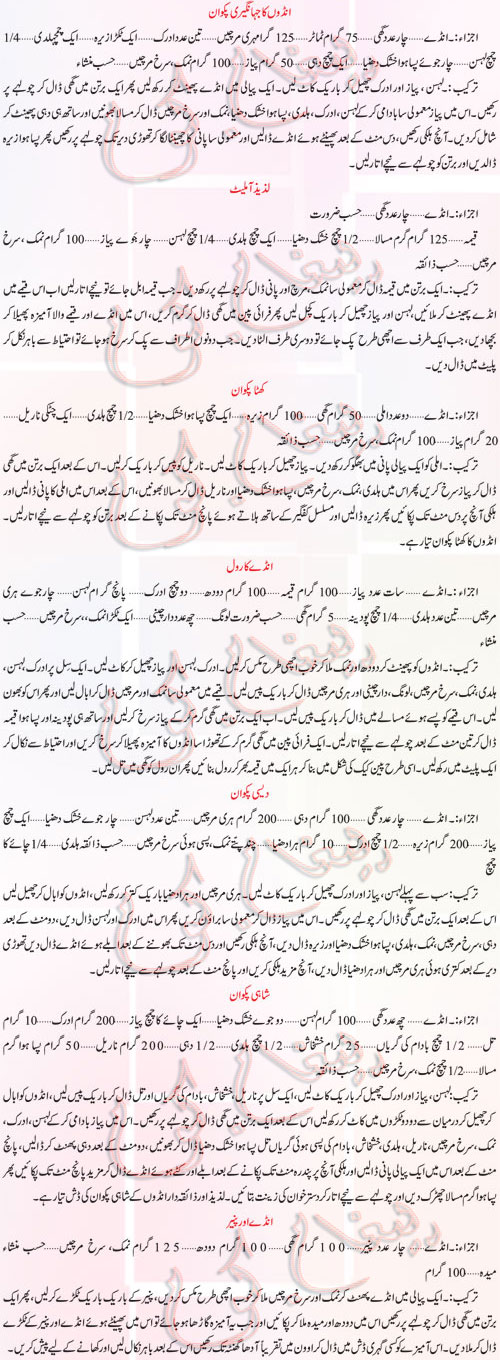 انڈوں کا جہانگیری پکوان
اجزاء:۔ انڈے..... چار عدد گھی..... 75 گرام ٹماٹر..... 125 گرام ہری مرچیں..... تین عدد ادرک..... ایک ٹکڑا زیرہ..... ایک چمچ ہلدی..... 1/4
چمچ لہسن..... چار جوئے پسا ہوا خشک دھنیا..... ایک چمچ دہی..... 50 گرام پیاز..... 100 گرام نمک، سرخ مرچیں..... حسب منشاء
ترکیب:۔ لہسن، پیاز اور ادرک چھیل کر باریک کاٹ لیں۔ ایک پیالی میں انڈے پھینٹ کر رکھ لیں پھر ایک برتن میں گھی ڈال کر چولہے پر
رکھیں۔ اس میں پیاز معمولی سا بادامی کر کے لہسن، ادرک، ہلدی، پسا ہوا خشک دھنیا، نمک اور سرخ مرچیں ڈال کر مسالا بھونیں اور ساتھ ہی دہی پھینٹ کر
شامل کر دیں۔ آنچ ہلکی رکھیں، دس منٹ کے بعد پھینٹے ہوئے انڈے ڈالیں اور معمولی سا پانی کا چھینٹا لگا کر تھوڑی دیر تک چولہے پر رکھیں پھر پسا ہوا زیرہ
ڈال دیں اور برتن کو چولہے سے نیچے اتار لیں۔
لذیذ آملیٹ
اجزاء:۔ انڈے..... چار عدد گھی..... حسب ضرورت
قیمہ..... 125 گرام گرم مسالا..... 1/2 چمچ خشک دھنیا..... ایک چمچ ہلدی..... 1/4 چمچ لہسن..... چار جوے پیاز..... 100 گرام نمک، سرخ
مرچیں..... حسب ذائقہ
ترکیب:۔ ایک برتن میں قیمہ ڈال کر معمولی سا نمک، مرچ اور پانی ڈال کر چولہے پر رکھ دیں۔ جب قیمہ ابل جائے تو نیچے اتار لیں اب اس قیمے میں
انڈے پھینٹ کر ملائیں، لہسن اور پیاز چھیل کر باریک کچل لیں پھر فرائی پین میں گھی ڈال کر گرم کریں، اس میں انڈے اور قیمے والا آمیزہ پھیلا کر
بچھا دیں، جب ایک طرف سے اچھی طرح پک جائے تو دوسری طرف الٹا دیں۔ جب دونوں اطراف سے پک کر سرخ ہو جائے تو احتیاط سے باہر نکال کر
پلیٹ میں ڈال دیں۔
کھٹا پکوان
اجزاء:۔ انڈے..... دو عدد املی..... 50 گرام گھی..... 100 گرام زیرہ..... ایک چمچ پسا ہوا خشک دھنیا..... 1/2 چمچ ہلدی..... ایک چٹکی ناریل.....
20 گرام پیاز..... 100 گرام نمک، سرخ مرچیں..... حسب ذائقہ
ترکیب:۔ املی کو ایک پیالی پانی میں بھگو کر رکھ دیں۔ پیاز چھیل کر باریک کاٹ لیں۔ ناریل کو پیس کر باریک کر لیں۔ اس کے بعد ایک برتن میں گھی
ڈال کر پیاز سرخ کریں پھر اس میں ہلدی، نمک، سرخ مرچیں، پسا ہوا خشک دھنیا اور ناریل ڈال کر مسالا بھونیں، اس کے بعد اس میں املی کا پانی ڈالیں اور
ہلکی آنچ پر دس منٹ تک پکائیں پھر زیرہ ڈالیں اور مسلسل کفگیر کے ساتھ ہلاتے ہوئے پانچ منٹ تک پکانے کے بعد برتن کو چولہے سے نیچے اتار لیں۔
انڈوں کا کھٹا پکوان تیار ہے۔
انڈے کا رول
اجزاء:۔ انڈے..... سات عدد پیاز..... 100 گرام قیمہ..... 100 گرام دودھ..... دو چمچ ادرک..... پانچ گرام لہسن..... چار جوے ہری
مرچیں..... تین عدد ہلدی..... 1/4 چمچ پودینہ..... 5 گرام گھی..... حسب ضرورت لونگ..... چھ عدد دار چینی..... ایک ٹکڑا نمک، سرخ مرچیں..... حسب
منشاء
ترکیب:۔ انڈوں کو پھینٹ کر دودھ اور نمک ملا کر خوب اچھی طرح مکس کر لیں۔ ادرک، لہسن اور پیاز چھیل کر کاٹ لیں۔ ایک سل پر ادرک، لہسن،
ہلدی، نمک، سرخ مرچیں، لونگ، دار چینی اور ہری مرچیں ڈال کر باریک پیس لیں۔ قیمے میں معمولی سا نمک اور سرخ مرچیں ڈال کر ابال لیں اور پھر اس کو بھون
لیں۔ اس قیمے کو پسے ہوئے مسالے میں ڈال کر باریک پیس لیں۔ اب ایک برتن میں گھی گرم کر کے پیاز سرخ کر لیں اور ساتھ ہی پودینہ اور پسا ہوا قیمہ
ڈال کر تین منٹ کے بعد چولہے سے نیچے اتار لیں۔ ایک فرائی پین میں گھی گرم کر کے تھوڑا سا انڈوں کا آمیزہ پھیلا کر سرخ کریں اور احتیاط سے نکال کر
ایک پلیٹ میں رکھ لیں۔ اسی طرح پین کیک کی شکل میں بنا کر ہر ایک میں قیمہ بھر کر رول بنائیں پھر ان رول کو گھی میں تل لیں۔
دیسی پکوان
اجزاء:۔ انڈے..... چار عدد گھی..... 100 گرام دہی..... 200 گرام ہری مرچیں..... تین عدد لہسن..... چار جوے خشک دھنیا..... ایک چمچ
پیاز..... 200 گرام زیرہ..... 1/2 چمچ ادرک..... 10 گرام ہرا دھنیا..... چند پتے نمک، پسی ہوئی سرخ مرچیں..... حسب ذائقہ ہلدی..... 1/4 چائے کا
چمچ
ترکیب:۔ سب سے پہلے لہسن، پیاز اور ادرک چھیل کر باریک کاٹ لیں۔ ہری مرچیں اور ہرا دھنیا باریک کتر کر رکھ لیں، انڈوں کو ابال کر چھیل لیں
اس کے بعد ایک برتن میں گھی ڈال کر چولہے پر رکھیں۔ اس میں پیاز ڈال کر معمولی سا براؤن کریں پھر اس میں ادرک اور لہسن ڈال دیں، دو منٹ کے بعد
دہی، سرخ مرچیں، نمک، ہلدی، پسا ہوا خشک دھنیا اور زیرہ ڈال دیں، آنچ ہلکی رکھیں اور دس منٹ تک بھوننے کے بعد ابلے ہوئے انڈے ڈال دیں تھوڑی
دیر کے بعد کتری ہوئی ہری مرچیں اور ہرا دھنیا ڈال دیں، آنچ مزید ہلکی کریں اور پانچ منٹ کے بعد چولہے سے نیچے اتار لیں۔
شاہی پکوان
اجزاء:۔ انڈے..... چھ عدد گھی..... 100 گرام لہسن..... دو جوے خشک دھنیا..... ایک چائے کا چمچ پیاز..... 200 گرام ادرک..... 10 گرام
تل..... 1/2 چمچ بادام کی گریاں..... 25 گرام خشخاش..... 1/2 چمچ ہلدی..... 1/2 دہی..... 200 گرام ناریل..... 50 گرام پسا ہوا گرم
مسالا..... 1/2 چمچ نمک، سرخ مرچیں..... حسب ذائقہ
ترکیب:۔ لہسن، پیاز اور ادرک چھیل کر باریک کاٹ لیں۔ ایک سل پر ناریل، خشخاش، بادام کی گریاں اور تل ڈال کر باریک پیس لیں، انڈوں کو ابال
کر چھیل کر درمیان سے دو دو ٹکڑوں میں کاٹ کر رکھ لیں اس کے بعد ایک برتن میں گھی ڈال کر چولہے پر رکھیں۔ اس میں پیاز بادامی کر کے لہسن، ادرک،
نمک، سرخ مرچیں، ناریل، ہلدی، خشخاش، بادام کی پسی ہوئی گریاں تل پسا ہوا خشک دھنیا ڈال کر بھونیں، دو منٹ کے بعد دہی پھینٹ کر ڈالیں، پانچ
منٹ کے بعد اس میں ایک پیالی پانی ڈالیں اور ہلکی آنچ پر پندرہ منٹ تک پکانے کے بعد ابلے اور کٹے ہوئے انڈے ڈال کر مزید پانچ منٹ تک پکائیں پھر
پسا ہوا گرم مسالا چھڑک دیں اور چولہے سے نیچے اتار کر دستر خوان کی زینت بنائیں۔ لذیذ اور ذائقہ دار انڈوں کے شاہی پکوان کی ڈش تیار ہے۔
انڈے اور پنیر
اجزاء:۔ انڈے..... چار عدد پنیر..... 100 گرام گھی..... 100 گرام دودھ..... 125 گرام نمک، سرخ مرچیں..... حسب منشاء
میدہ..... 100 گرام
ترکیب:۔ ایک پیالی میں انڈے پھینٹ کر نمک اور سرخ مرچیں ملا کر خوب اچھی طرح مکس کر دیں، پنیر کے باریک باریک ٹکڑے کر لیں، پھر ایک
برتن میں گھی ڈال کر چولہے پر رکھیں اس میں دودھ اور میدہ ملا کر پکائیں اور جب یہ آمیزہ گاڑھا ہو جائے تو اس میں پھینٹے ہوئے انڈے اور پنیر کے ٹکڑے
ڈال کر ملا دیں۔ اس آمیزے کو کسی گہری ڈش میں ڈال کر اوون میں تقریباً آدھا گھنٹہ تک رکھیں اس کے بعد باہر نکال لیں اور کھانے کے لیے پیش کریں۔